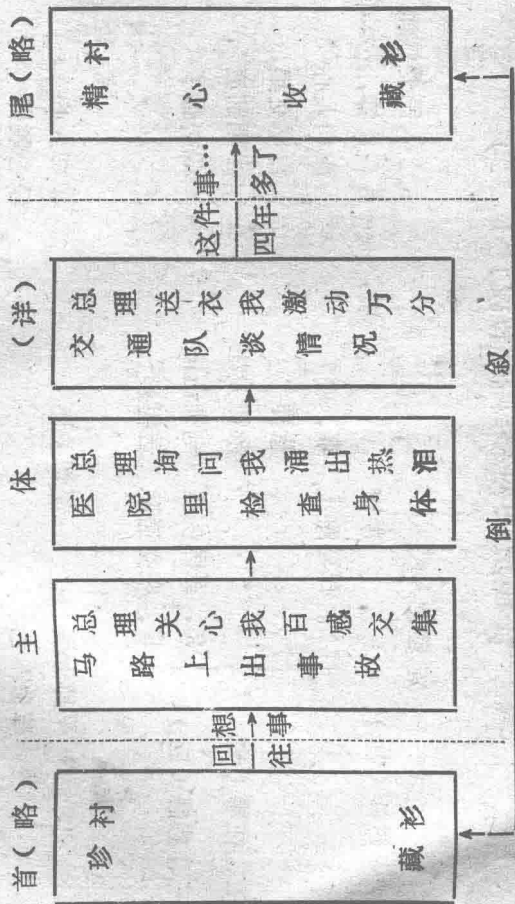 首(略)
主
体
(详)
尾(略)
珍藏
衬衫
回想
往事
马路上出事故
总理关心我百感交集
医院里检查身体
总理询问我涌出热泪
交通队谈情况
总理送衣我激动万分
这件事…
四年多了
精心收藏
衬衫
倒叙